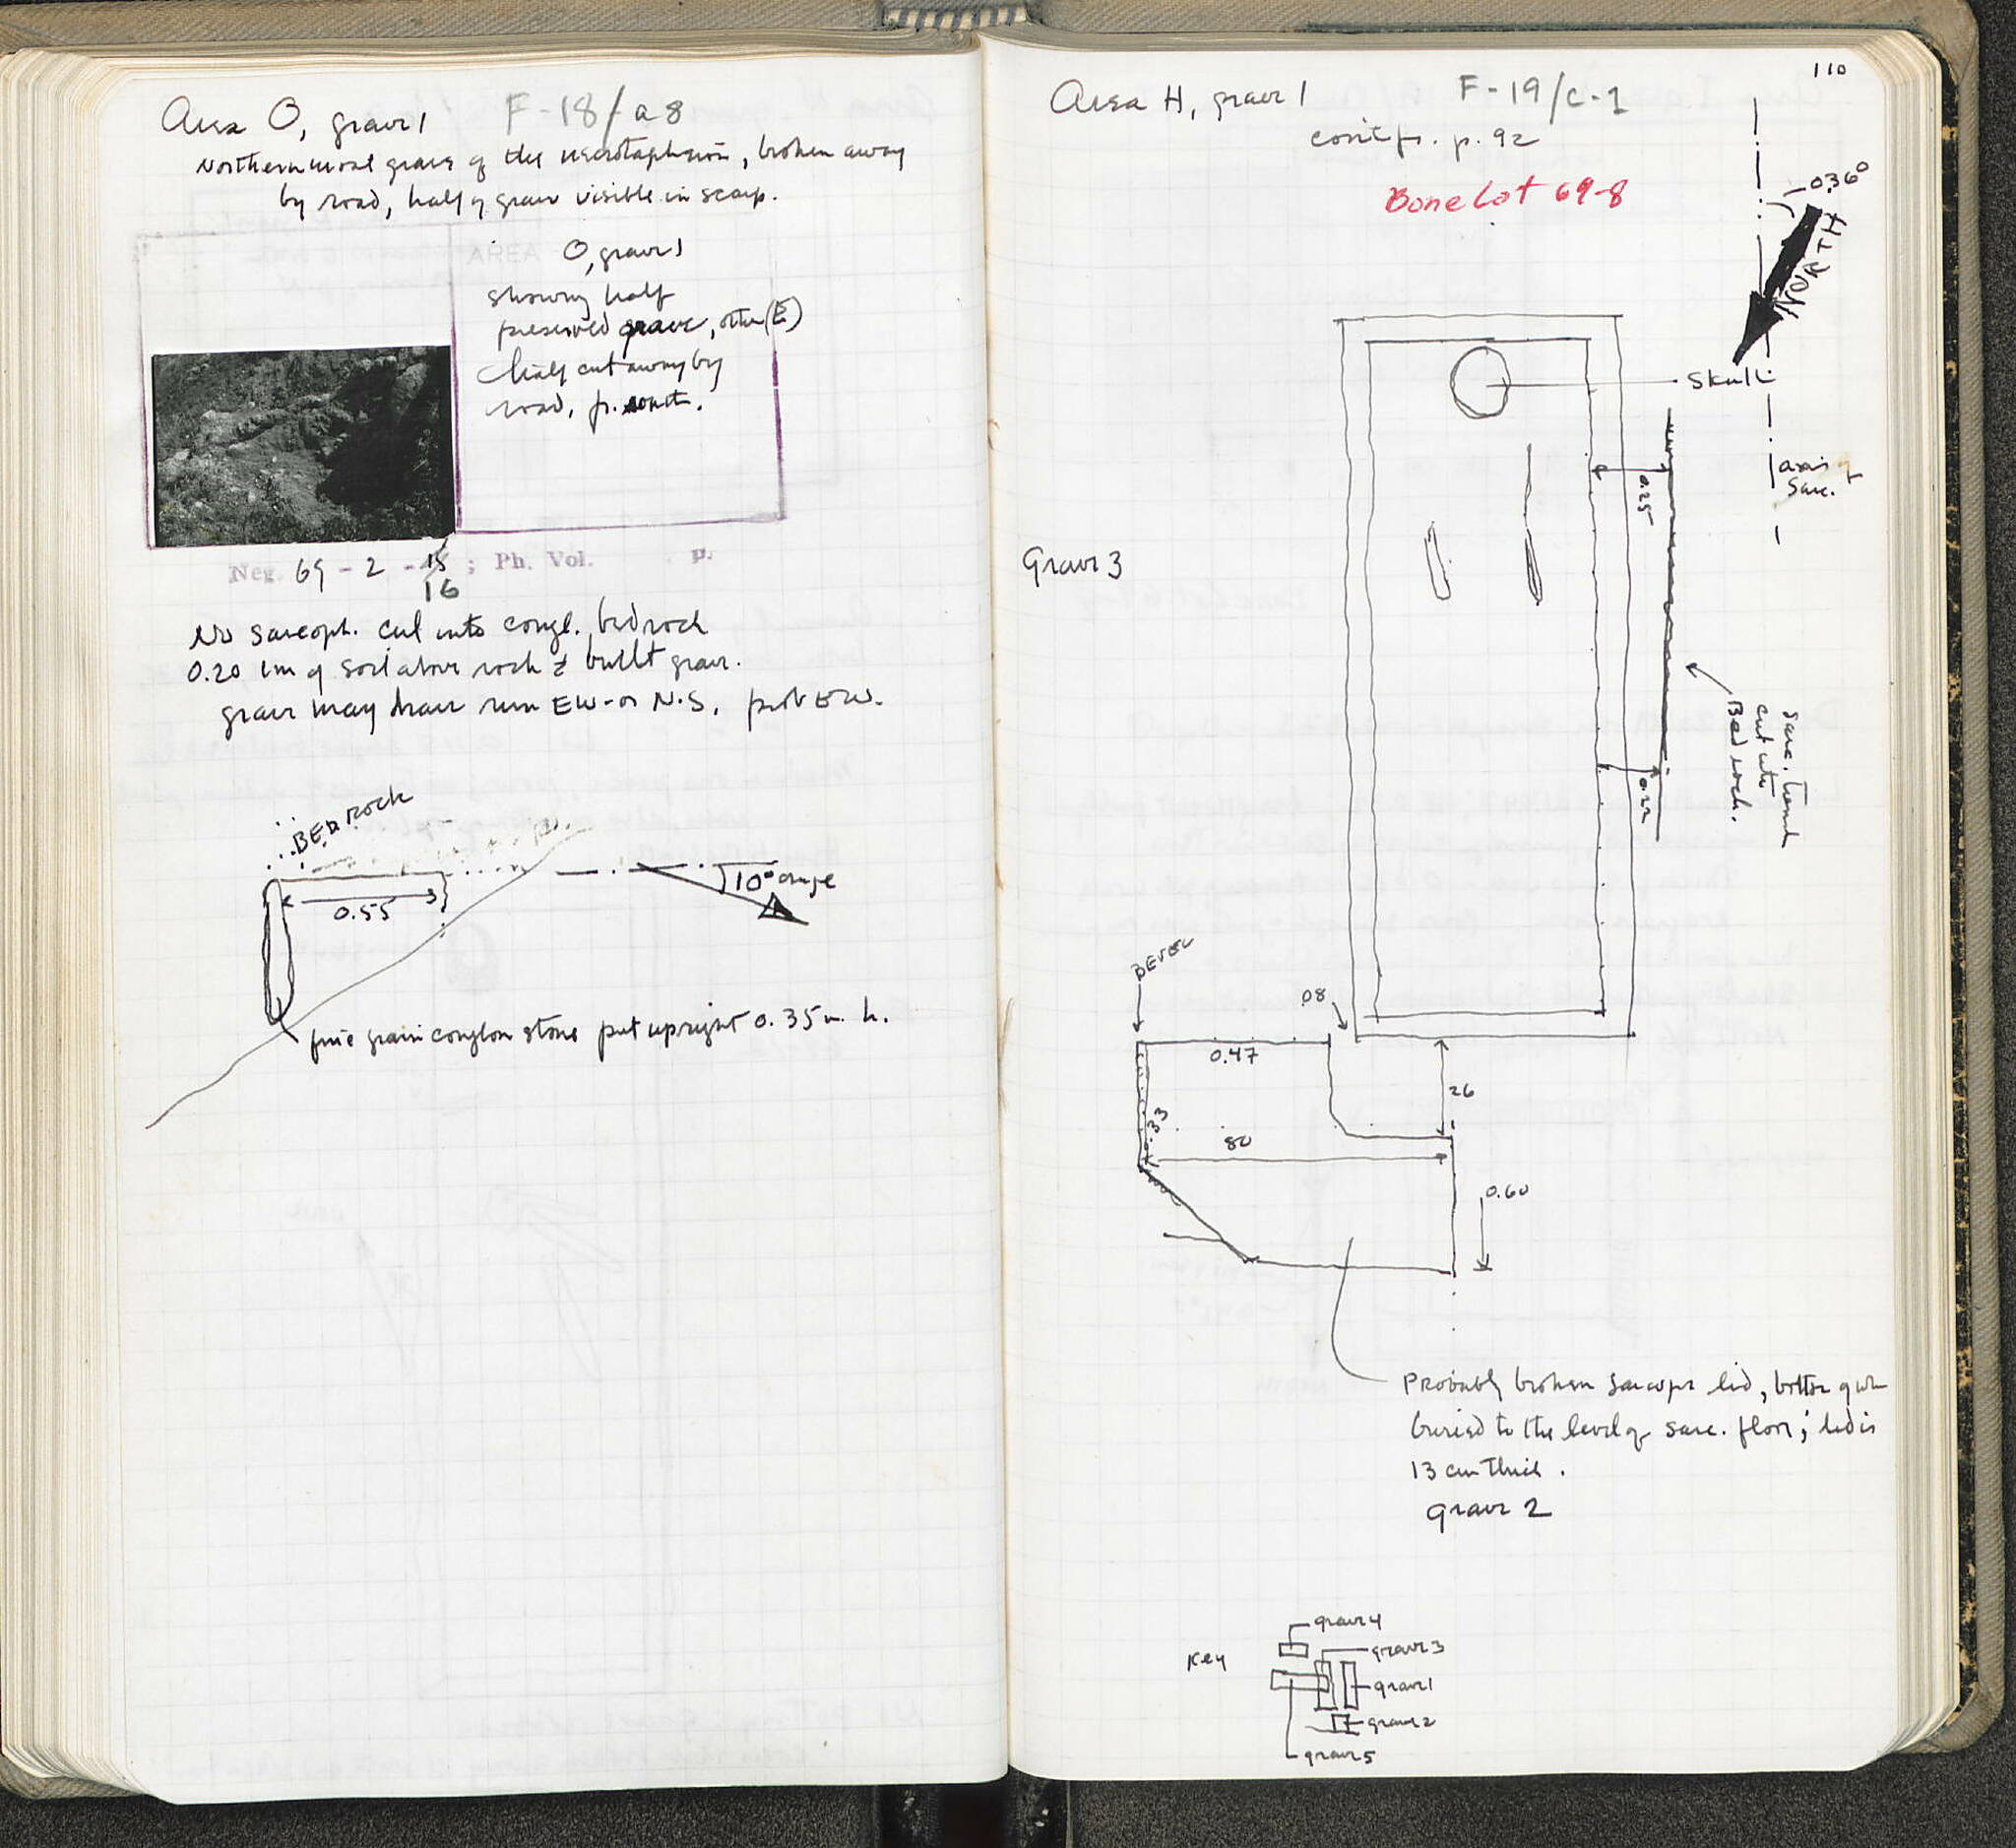 Area O, grave 1 F-18/a8
Northernmost grave of the necrotapheion, broken away
by road, half of grave visible in scarp.
AREA O, grave 1
showing half
preserved grave, other (E)
half cut away by
road, fr. north.
Neg. 69 - 2 - 15 ; Ph. Vol. p.
16
No sarcoph. cut into congl. bedrock
0.20 cm of soil above rock & built grave.
grave may have run EW- or N.S, prob EW.
BEDROCK
10°
0.55
fine grain conglom stone put upright 0.35 m. h.
110
Area H, grave 1 F-19/c-1
con't fr. p. 92
Bone Lot 69-8
036°
NORTH
Skull
axis of
Sarc.
0.25
Grave 3
Sarc. trench
cut into
Bed rock.
0.22
BEVEL
08
0.47
26
.33
80
0.60
Probably broken sarcoph lid, bottom of wh
buried to the level of sarc. floor; lid is
13 cm thick.
grave 2
grave 4
Key
grave 3
grave 1
grave 2
grave 5